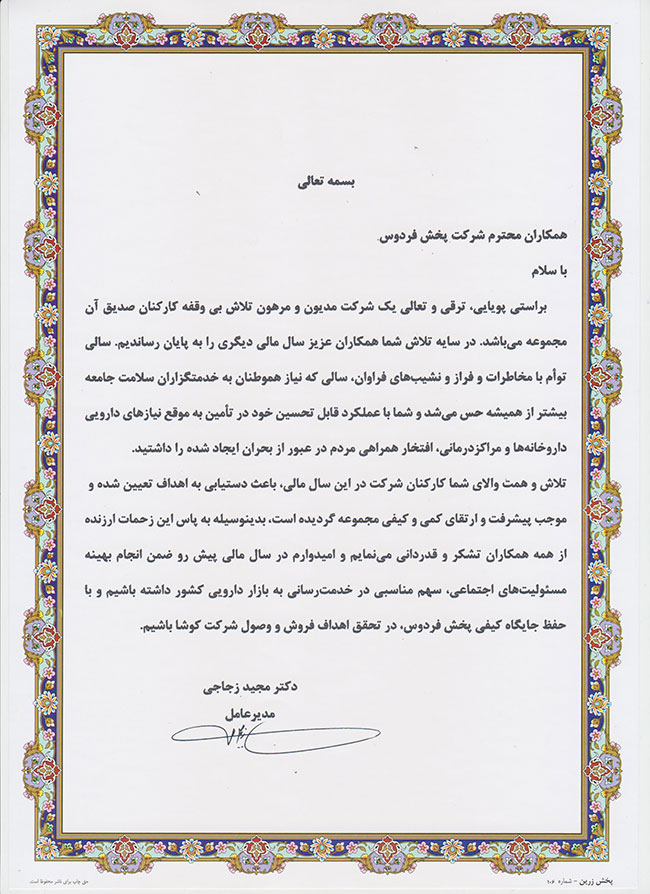 بسمه تعالی
همکاران محترم شرکت پخش فردوس
با سلام
براستی پویایی، ترقی و تعالی یک شرکت مدیون و مرهون تلاش بی وقفه کارکنان صدیق آن
مجموعه می‌باشد. در سایه تلاش شما همکاران عزیز سال مالی دیگری را به پایان رساندیم. سالی
توأم با مخاطرات و فراز و نشیب‌های فراوان، سالی که نیاز هموطنان به خدمتگزاران سلامت جامعه
بیشتر از همیشه حس می‌شد و شما با عملکرد قابل تحسین خود در تأمین به موقع نیازهای دارویی
داروخانه‌ها و مراکزدرمانی، افتخار همراهی مردم در عبور از بحران ایجاد شده را داشتید.
تلاش و همت والای شما کارکنان شرکت در این سال مالی، باعث دستیابی به اهداف تعیین شده و
موجب پیشرفت و ارتقای کمی و کیفی مجموعه گردیده است، بدینوسیله به پاس این زحمات ارزنده
از همه همکاران تشکر و قدردانی می‌نمایم و امیدوارم در سال مالی پیش رو ضمن انجام بهینه
مسئولیت‌های اجتماعی، سهم مناسبی در خدمت‌رسانی به بازار دارویی کشور داشته باشیم و با
حفظ جایگاه کیفی پخش فردوس، در تحقق اهداف فروش و وصول شرکت کوشا باشیم.
دکتر مجید زجاجی
مدیرعامل
پخش زرین - شماره ۱۰۶
حق چاپ برای ناشر محفوظا است.